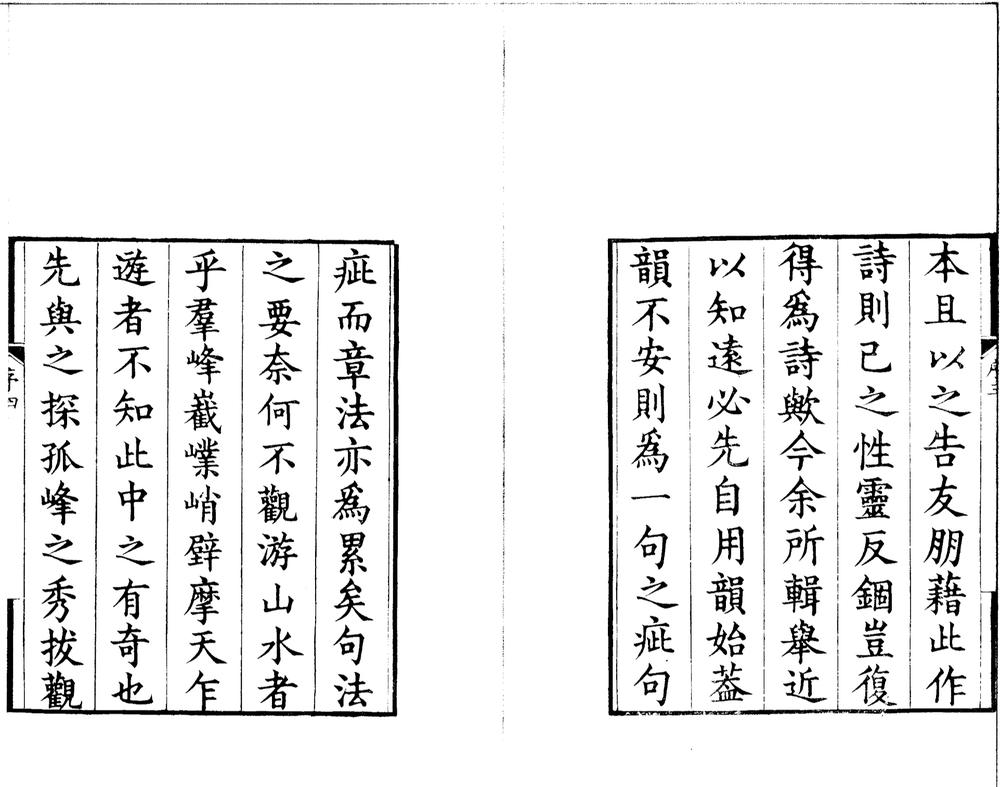 本且以之告友朋藉此作
詩則己之性靈反錮豈復
得爲詩歟今余所輯舉近
以知遠必先自用韻始葢
韻不安則爲一句之疵句
疵而章法亦爲累矣句法
之要奈何不觀游山水者
乎羣峰嶻嶫峭壁摩天乍
遊者不知此中之有奇也
先與之探孤峰之秀拔觀
序四